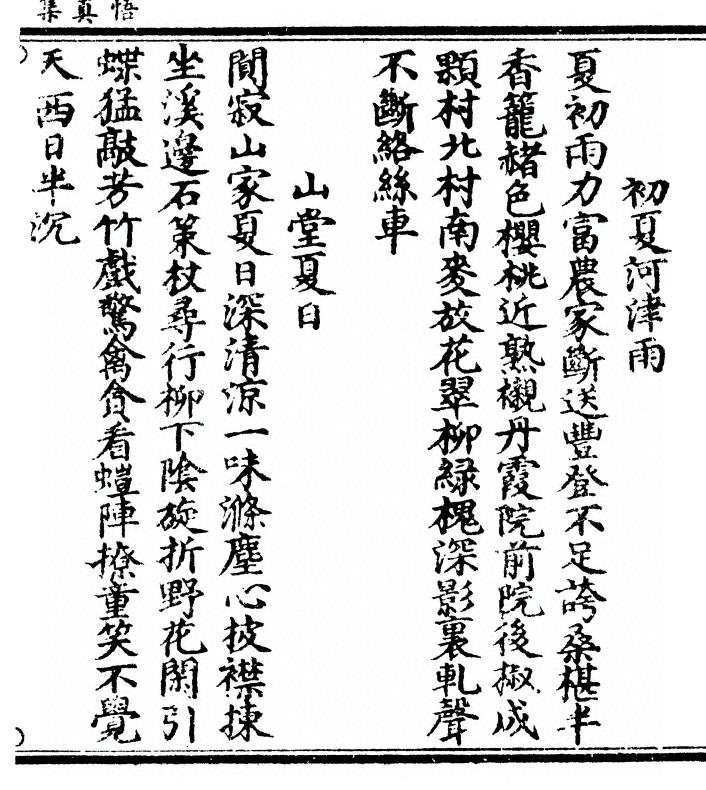 初夏河津雨
夏初雨力富農家斷送豐登不足誇桑椹半
香籠赭色櫻桃近熟襯丹霞院前院後椒成
顆村北村南麥放花翠柳緑槐深影裏軋聲
不斷絡絲車
山堂夏日
閴寂山家夏日深清凉一味滌塵心披襟揀
坐溪邊石策杖尋行柳下陰旋折野花閑引
蝶猛敲芳竹戲驚禽貪看螘陣撩童笑不覺
天西日半沉
悟真集